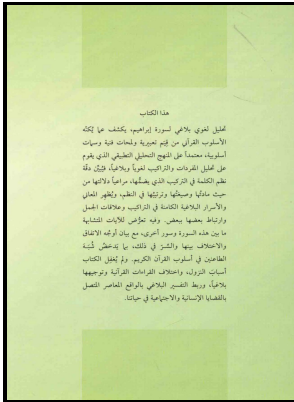 هذا الكتاب
تحليل لغوي بلاغي لسورة إبراهيم، يكشف عما يُكِنُّه
الأسلوب القرآني من قِيَم تعبيرية ولمحات فنية وسمات
أسلوبية، معتمداً على المنهج التحليلي التطبيقي الذي يقوم
على تحليل المفردات والتراكيب لغوياً وبلاغياً، فيُبيِّن دقَّة
نظم الكلمة في التركيب الذي يضمُّها، مراعياً دلالتها من
حيث مادتُها وصيغتُها وترتيبُها في النظم، ويُظهر المعاني
والأسرار البلاغية الكامنة في التراكيب وعلاقات الجمل
وارتباط بعضها ببعض. وفيه تعرُّض للآيات المتشابهة
ما بين هذه السورة وسور أخرى، مع بيان أوجه الاتفاق
والاختلاف بينها والسِّرّ في ذلك، بما يَدحَضُ شُبَهَ
الطاعنين في أسلوب القرآن الكريم. ولم يُغفِل الكتاب
أسبابَ النزول، واختلاف القراءات القرآنية وتوجيهها
بلاغياً، وربط التفسير البلاغي بالواقع المعاصر المتصل
بالقضايا الإنسانية والاجتماعية في حياتنا.